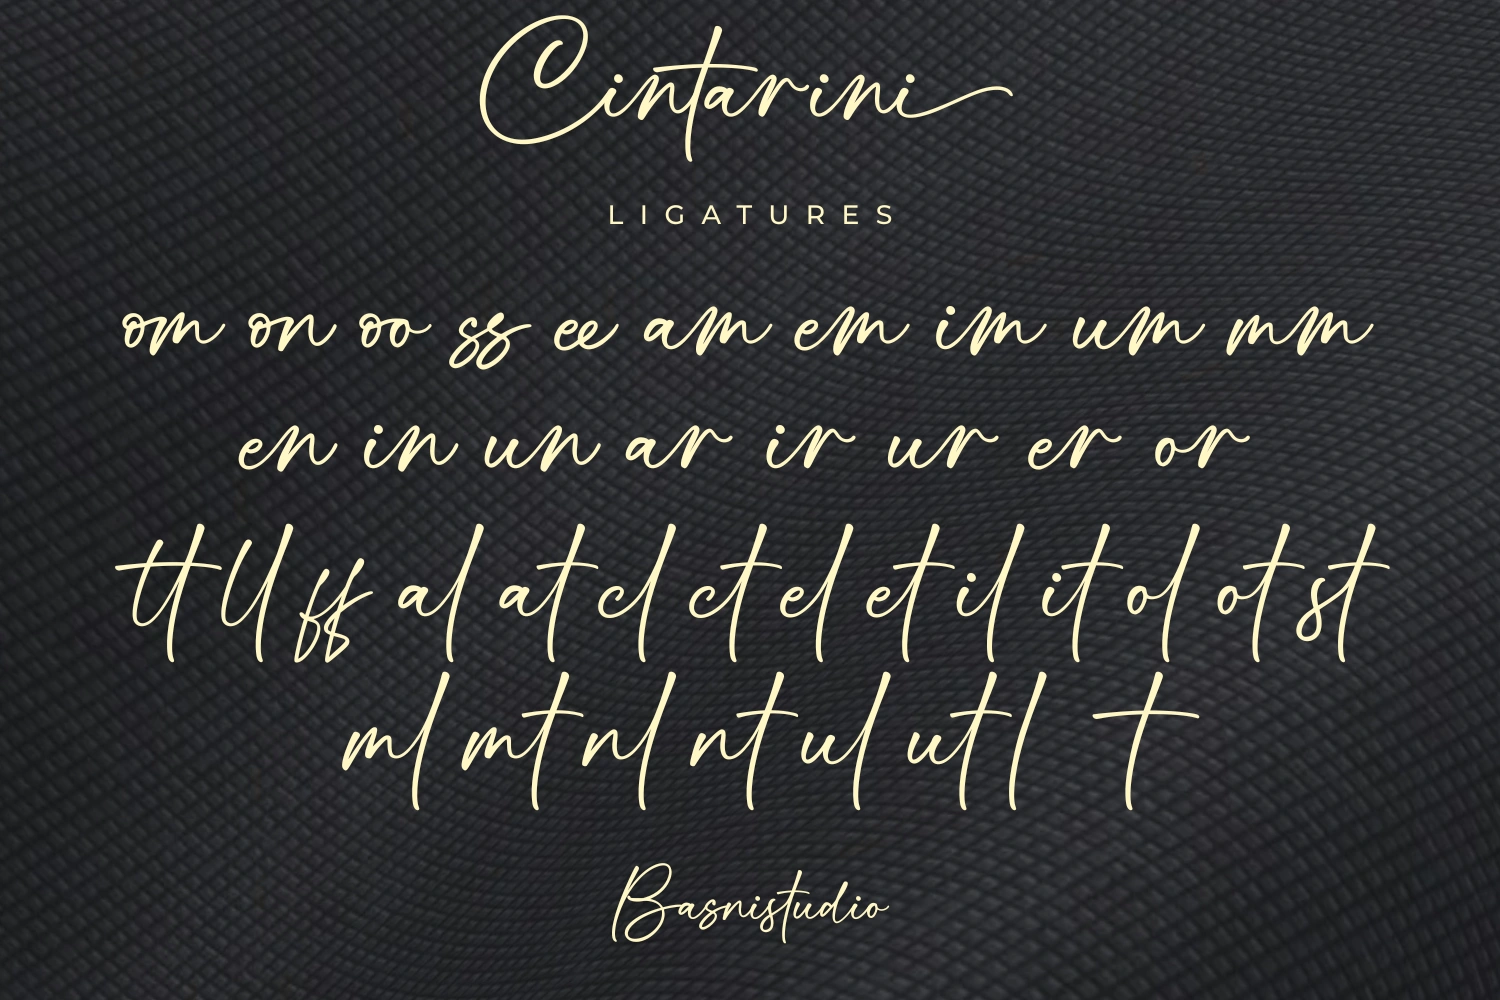 Cintarini
LIGATURES
om on oo ss ee am em im um mm
en in un ar ir ur er or
tt ll ff al at cl ct el et il it ol ot st
ml mt nl nt ul ut l t
Basnistudio